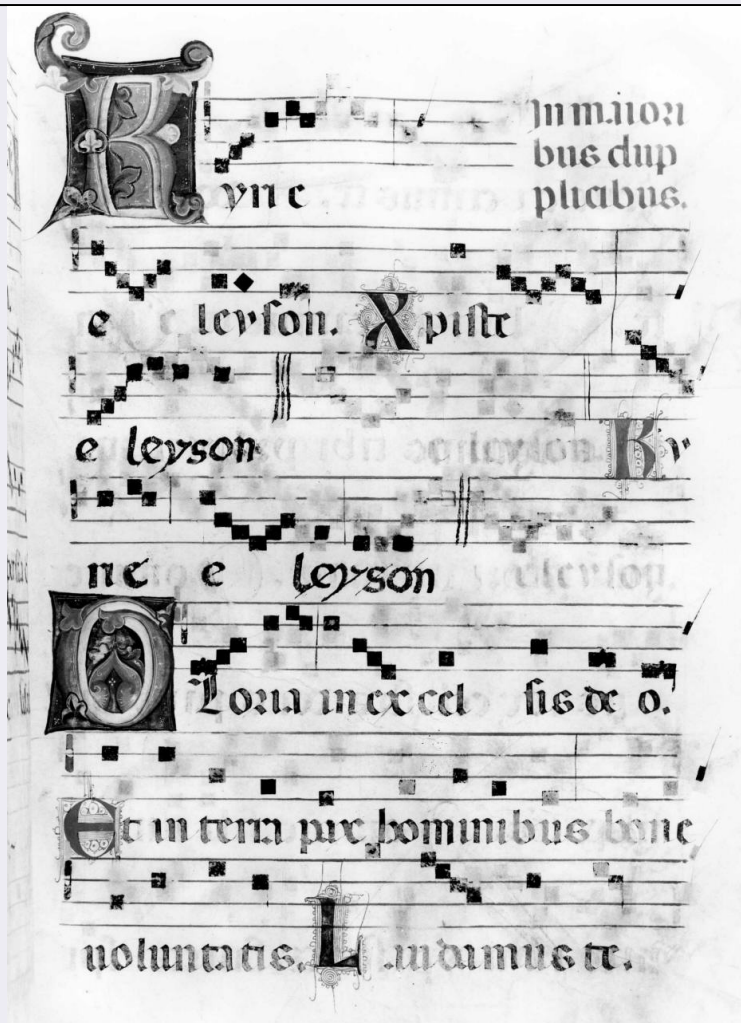 In maiori
bus dup
plicibus.
Kyrie
e e leyson. Xpiste
e leyson Ky
rie e leyson
Gloria in excelsis deo.
Et in terra pax hominibus bone
uoluntatis. Laudamus te.